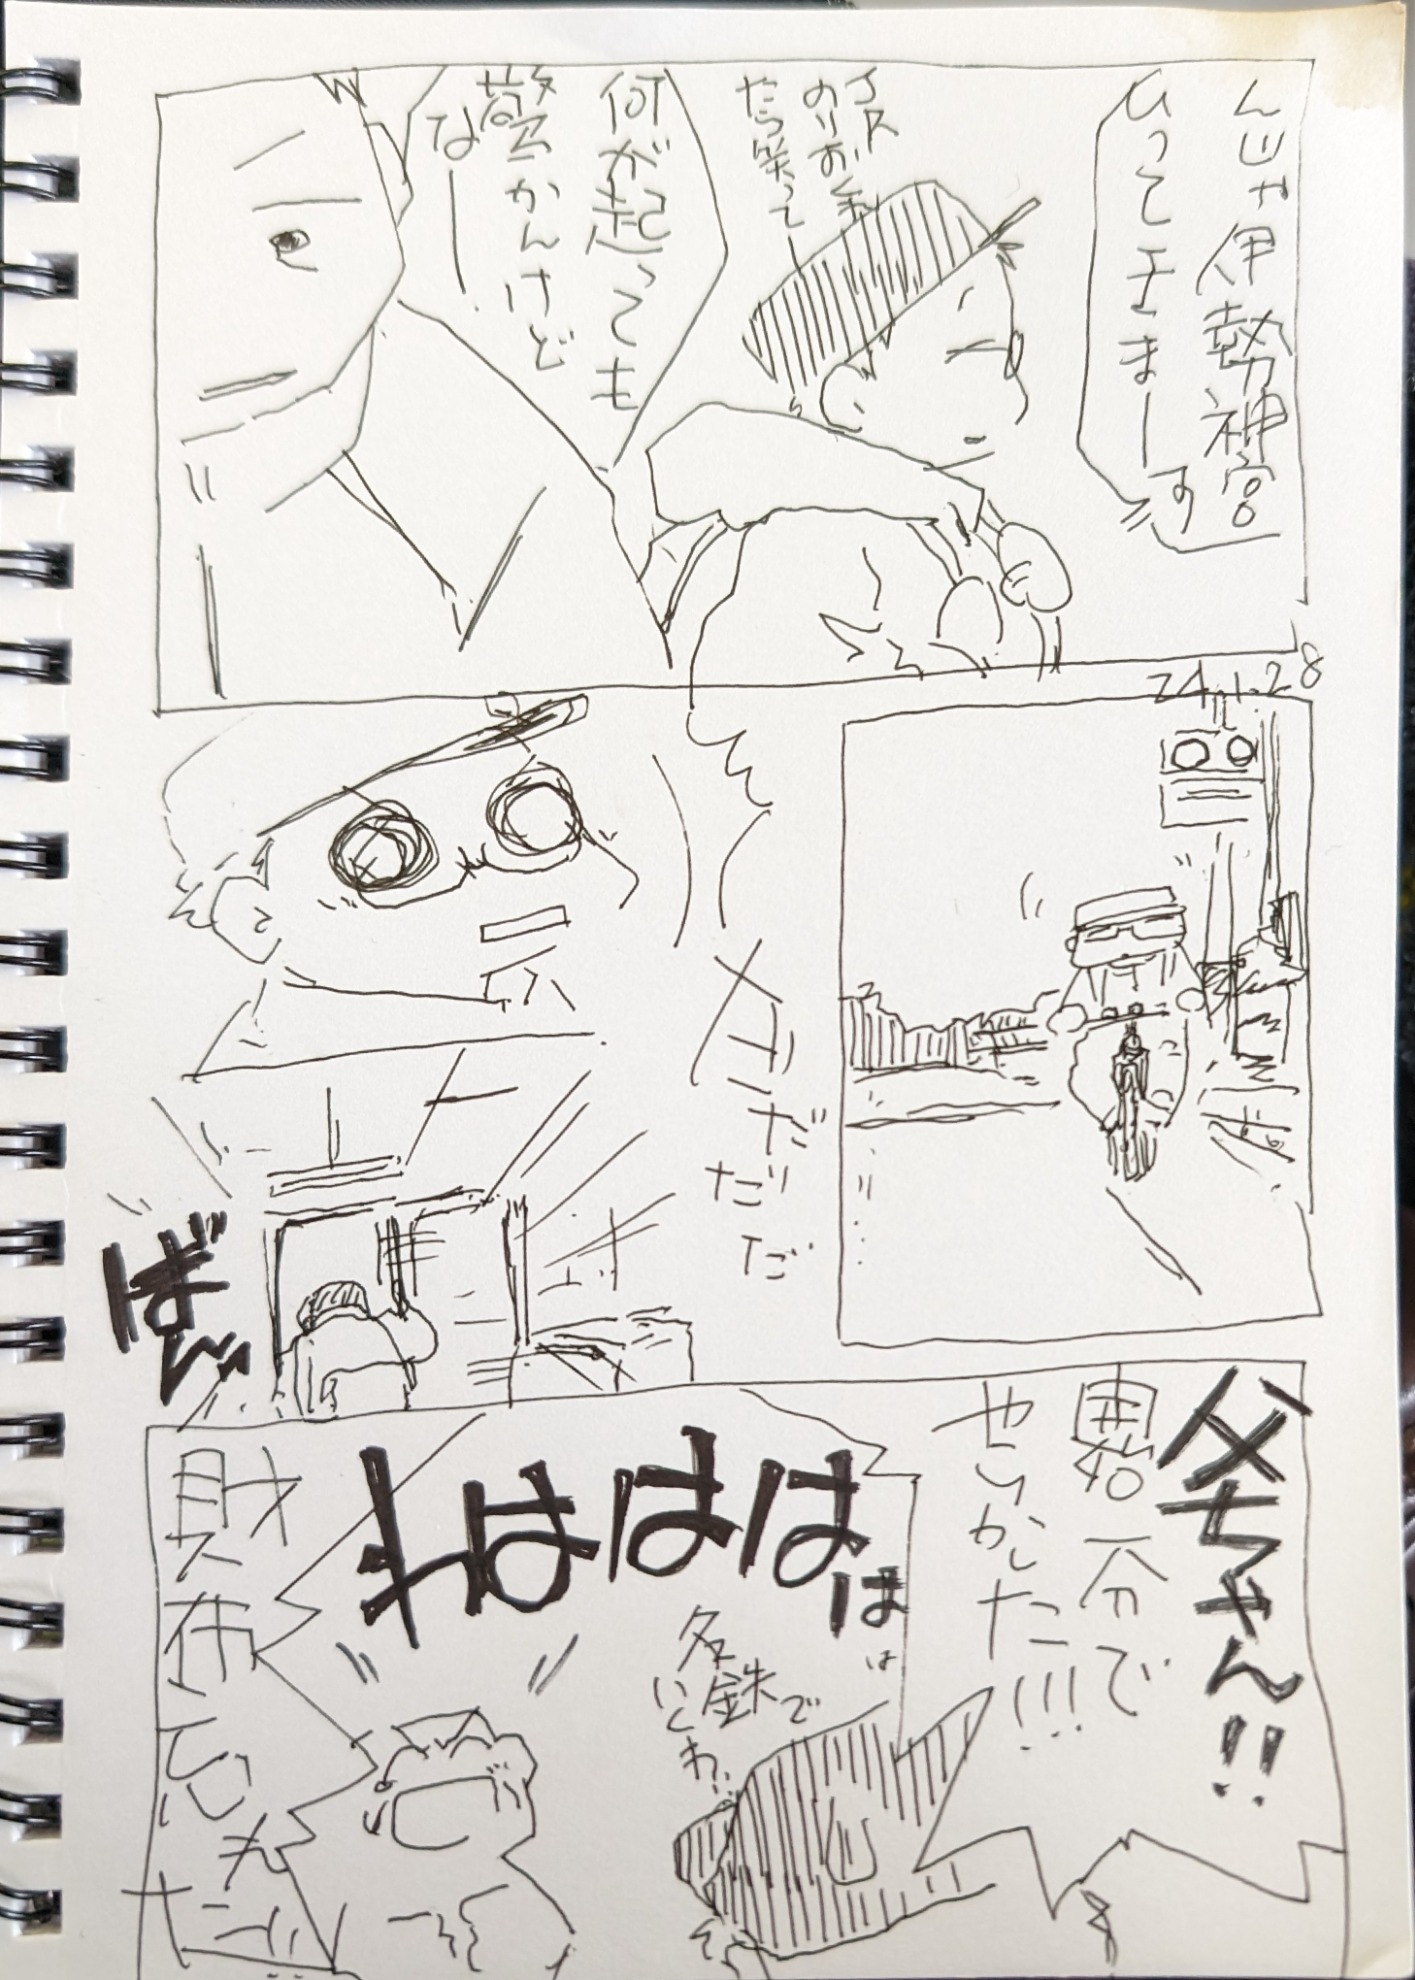 んじゃ伊勢神宮
いってきまーす
JR
のりおくれ
たら笑って
何が起っても
驚かんけど
なー
24.1.28
ダダ
だ
だ
だ
ばん
父ちゃん!!
開始一分で
やらかした!!!
わははは
は
は
名鉄で
いくわ…
財布忘れ
た